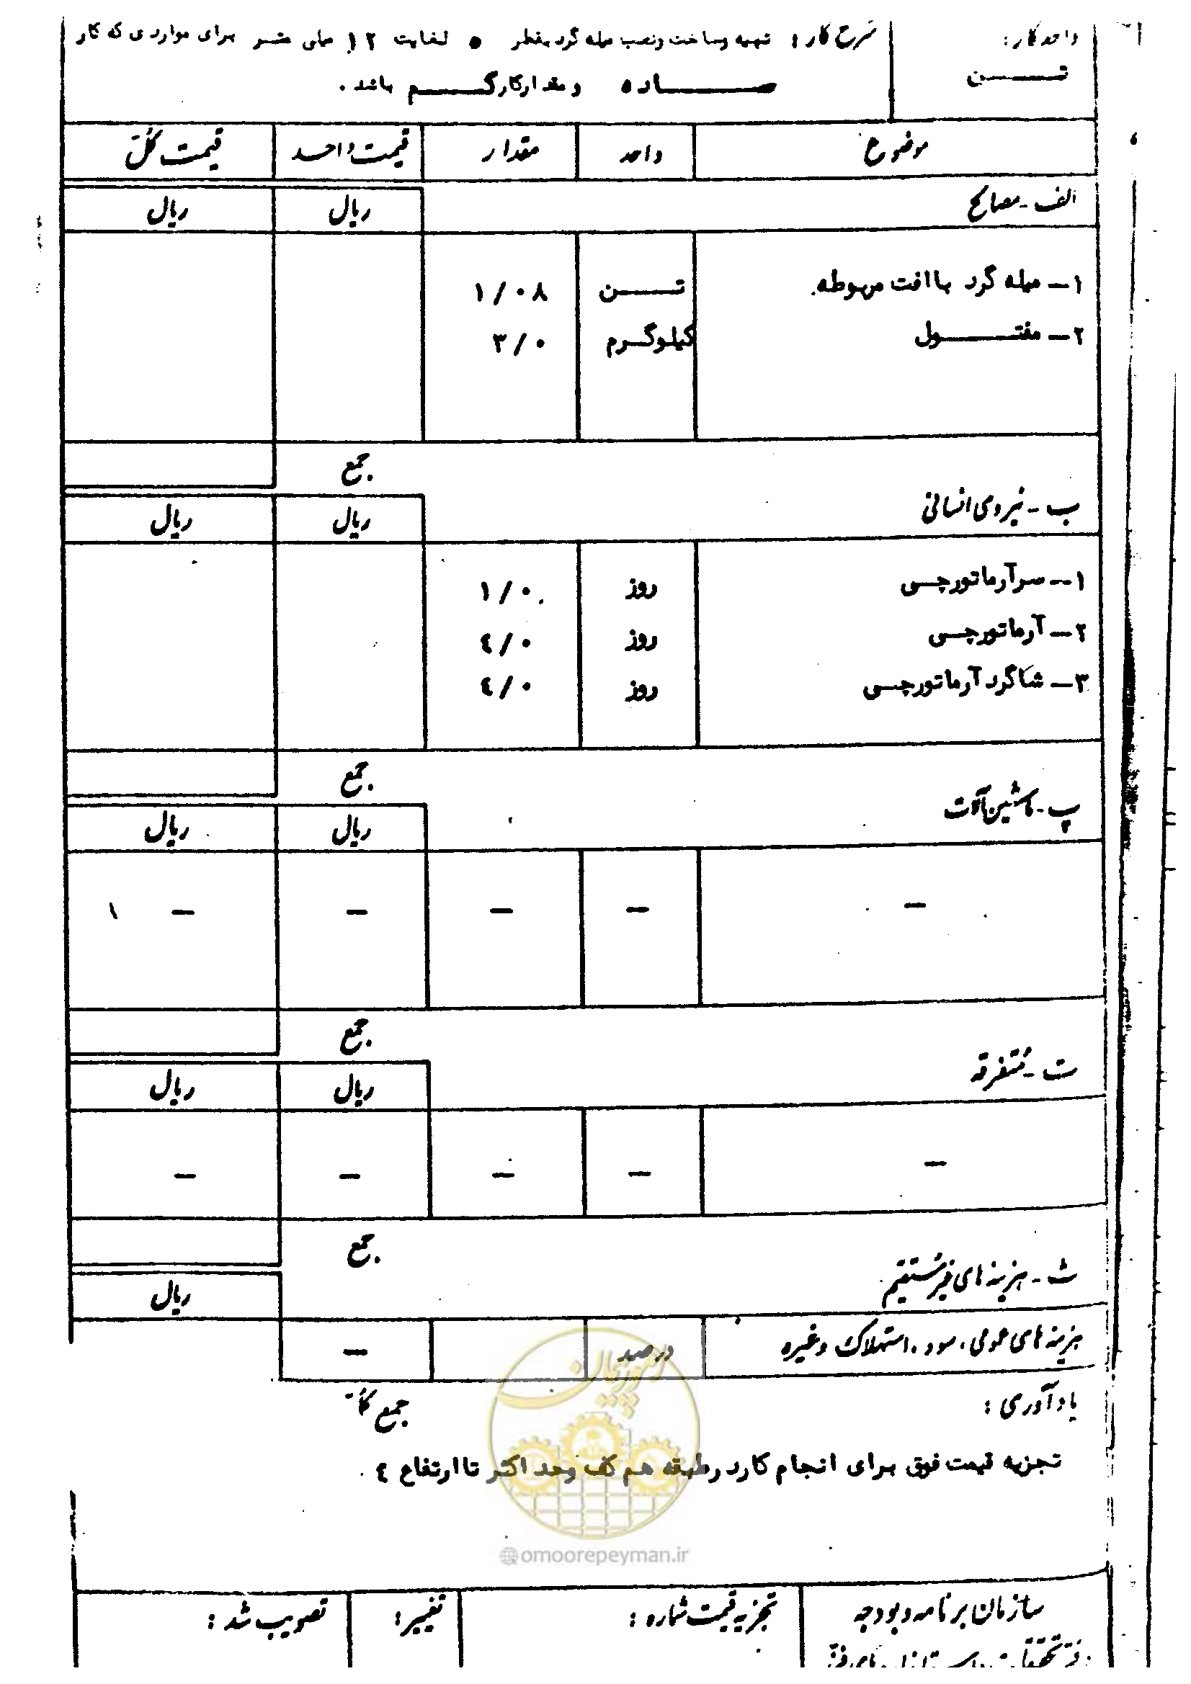 واحد کار :
تــــن
شرح کار : تهیه و ساخت و نصب میله گرد بقطر ٥ لغایت ١٢ میلی متر برای مواردی که کار
ســــاده و مقدار کار کــــم باشد .
موضوع واحد مقدار قیمت واحد قیمت کل
الف - مصالح ریال ریال
١ - میله گرد با افت مربوطه. تــــن ١/٠٨
٢ - مفتــــول کیلوگرم ٣/٠
جمع
ب - نیروی انسانی ریال ریال
١ - سرآرماتورچی روز ١/٠
٢ - آرماتورچی روز ٤/٠
٣ - شاگرد آرماتورچی روز ٤/٠
جمع
پ - ماشین آلات ریال ریال
— — — — —
جمع
ت - متفرقه ریال ریال
— — — — —
جمع
ث - هزینه های غیر مستقیم ریال
هزینه های عمومی ، سود ، استهلاک وغیره درصد —
جمع کل
یادآوری :
تجزیه قیمت فوق برای انجام کار در طبقه هم کف وحد اکثر تا ارتفاع ٤ .
امور پیمان
@omoorepeyman.ir
سازمان برنامه و بودجه
تجزیه قیمت شماره :
تغییر :
تصویب شد :